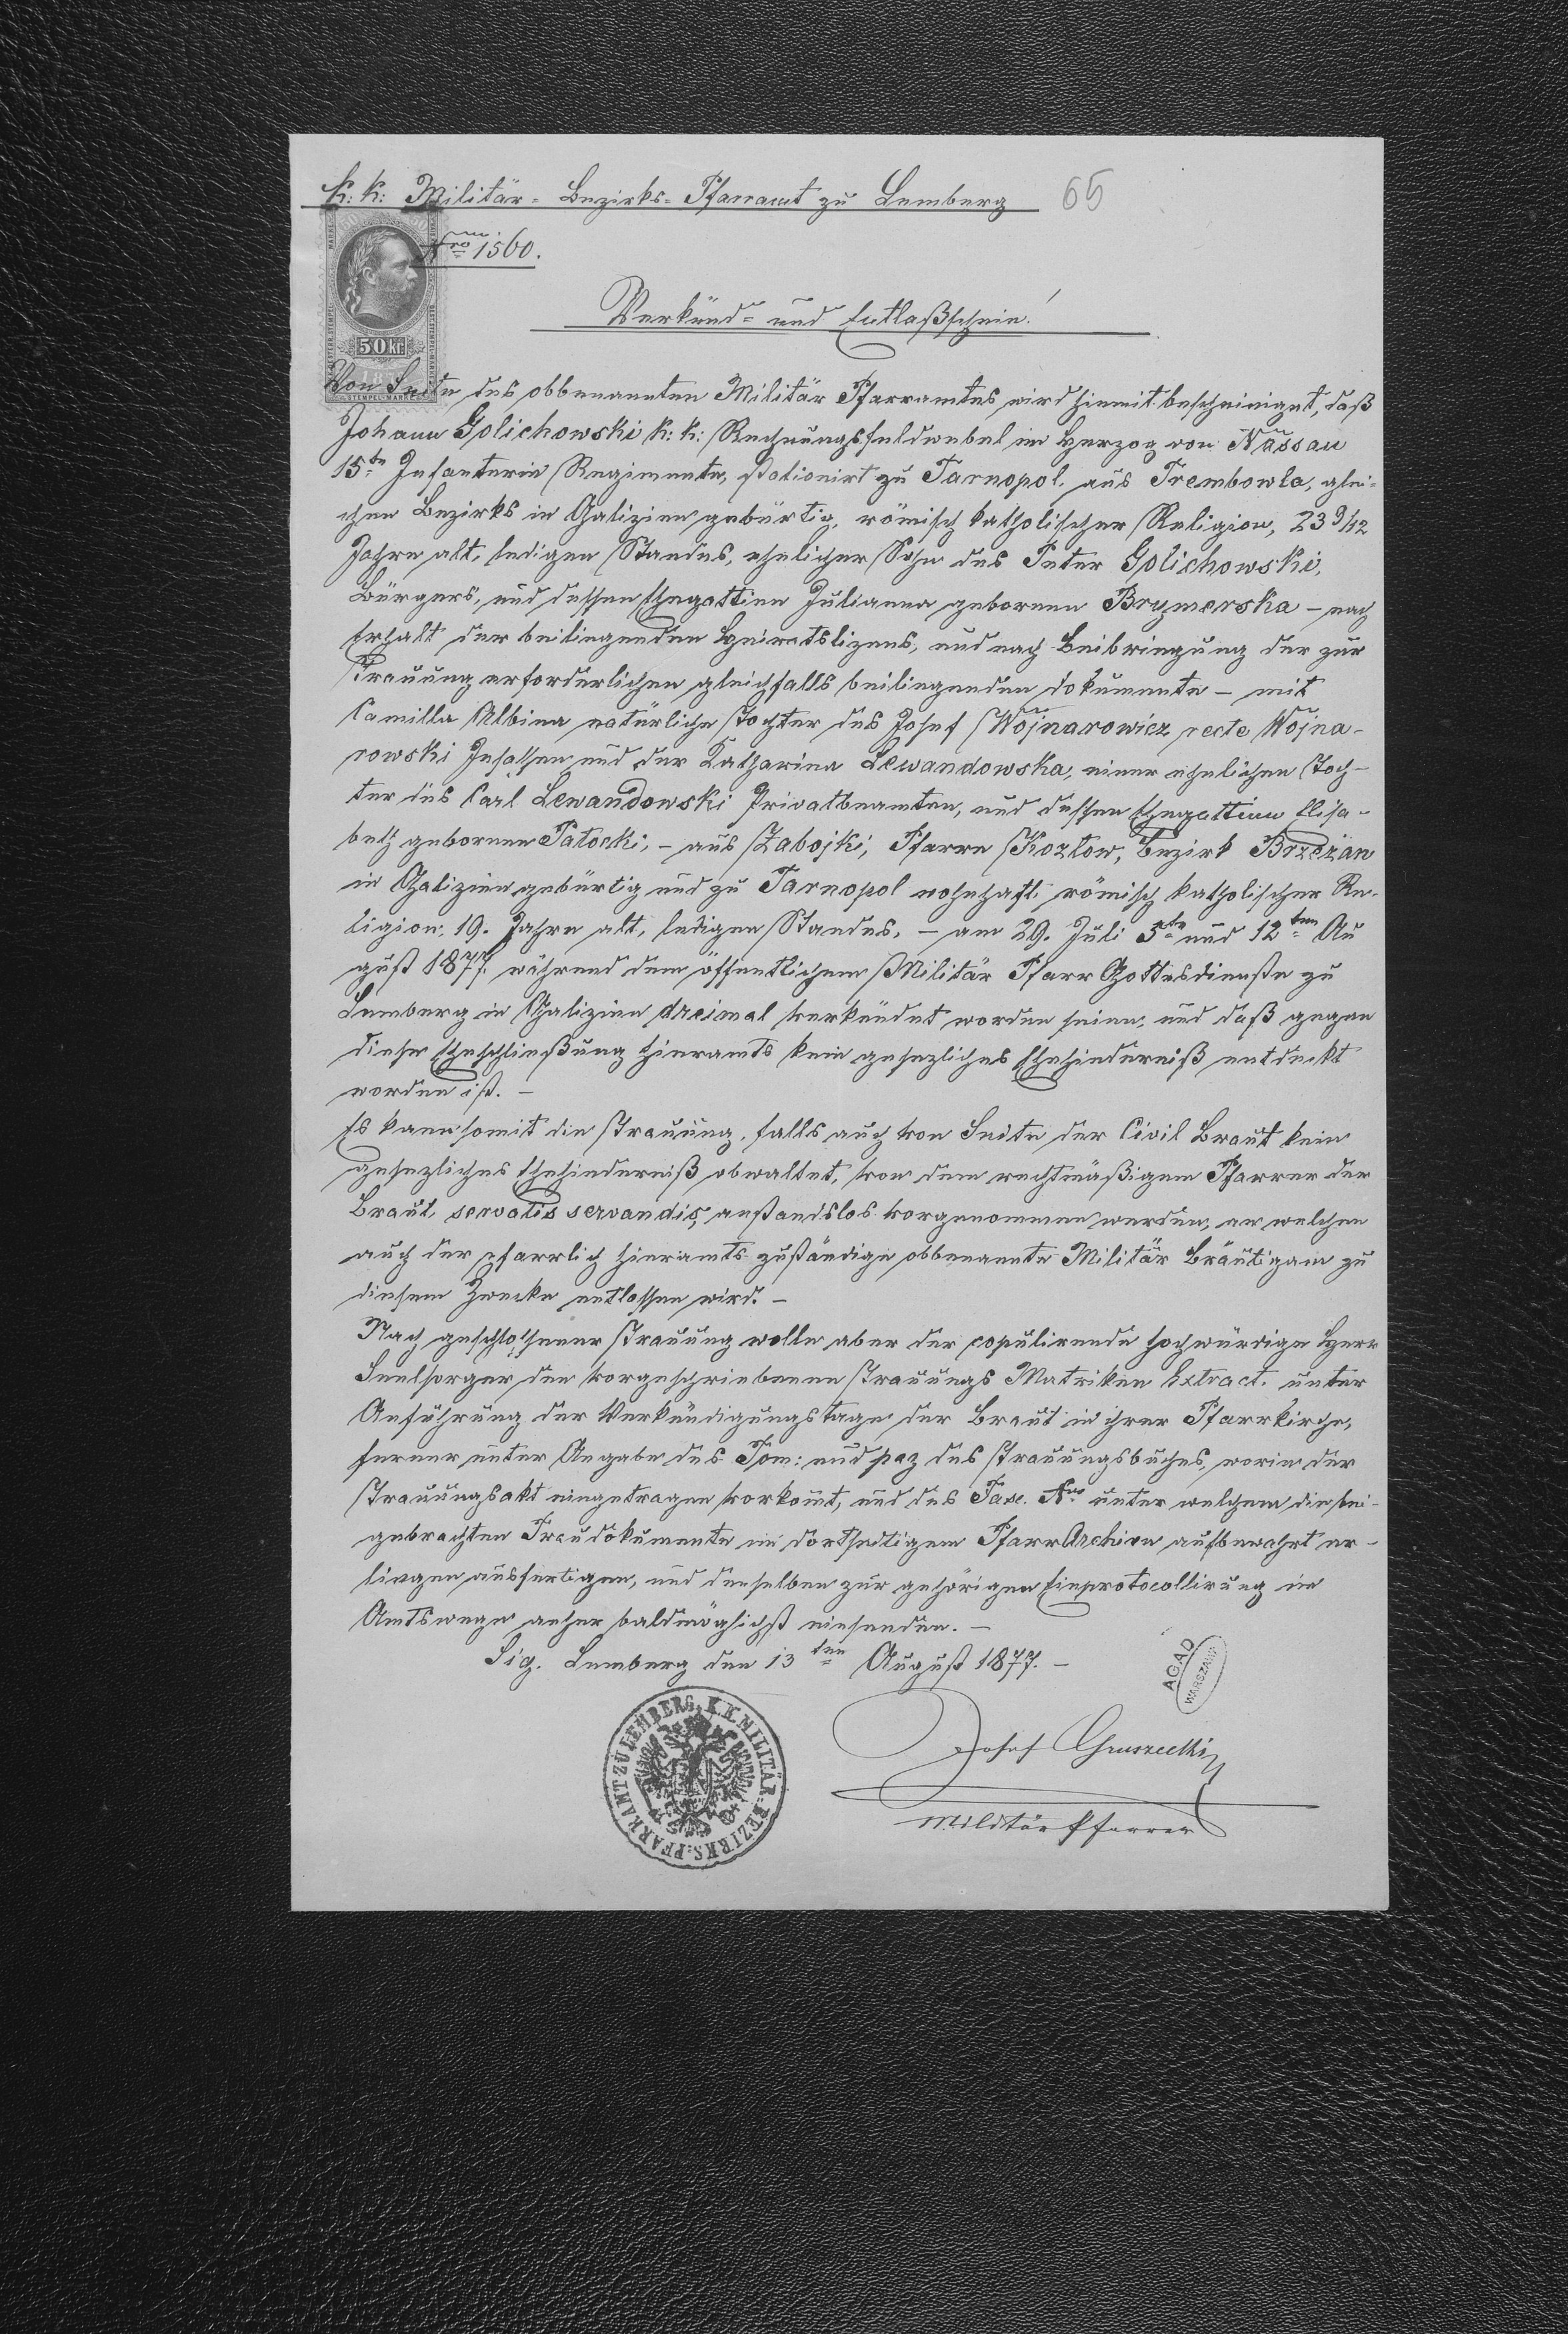 K: K: Militär-Bezirks-Pfarramt zu Lemberg 65
Nro 1560.
Verkünd- und Entlaßschein!
50 kr
STEMPEL-MARKE
Von Seite des obbenannten Militär Pfarramtes wird hiemit bescheiniget, daß
Johann Golichowski k: k: Rechnungsfeldwebel im Herzog von Nassau
15te Infanterie Regimente, stationirt zu Tarnopol, aus Trembowla, glei-
chen Bezirks in Galizien gebürtig, römisch katholischer Religion, 23 9/12
Jahre alt, ledigen Standes, ehelicher Sohn des Peter Golichowski,
Bürgers, und dessen Ehegattin Julianna gebornen Brymerska – nach
Erhalt der beiliegenden Heiratslizens, und nach Beibringung der zur
Trauung erforderlichen gleichfalls beiliegenden Dokumente – mit
Camilla Albina natürliche Tochter des Josef Wojnarowicz recte Wojna-
rowski Insassen und der Katharina Lewandowska, einer ehelichen Toch-
ter des Carl Lewandowski Privatbeamten, und dessen Ehegattinn Elisa-
beth gebornen Patocki, – aus Zabojki, Pfarre Kozlow, Bezirk Brzeżan
in Galizien gebürtig und zu Tarnopol wohnhaft, römisch katholischer Re-
ligion, 19. Jahre alt, ledigen Standes, – am 29. Juli 5te und 12ten Au
gust 1877. während dem öffentlichem Militär Pfarr Gottesdienste zu
Lemberg in Galizien dreimal verkündet worden seien, und daß gegen
diese Eheschließung hieramts kein gesezliches Ehehinderniß entdeckt
worden ist. –
Es kann somit die Trauung, falls auch von Seite der Civil Braut kein
gesezliches Ehehinderniß obwaltet, von dem rechtmäßigem Pfarrer der
Braut, servatis servandis, anstandslos vorgenommen werden, an welchen
auch der pfarrlich hieramts zuständige obbenannte Militär Bräutigam zu
diesem Zwecke entlassen wird. –
Nach geschlossener Trauung wolle aber der copulirende hochwürdige Herr
Seelsorger den vorgeschriebenen Trauungs Matriken Extract. unter
Anführung der Verkündigungstage der Braut in ihrer Pfarrkirche,
ferner unter Angabe des Tom: und pag des Trauungsbuches, worin der
Trauungsakt eingetragen vorkomt, und des Fasc. Nro unter welchem die bei-
gebrachten Traudokumente im dortseitigem PfarrArchive aufbewahrt er-
liegen ausfertigen, und denselben zur gehörigen Einprotocollirung im
Amtswege anher baldmöglichst einsenden. –
Sig. Lemberg den 13ten August 1877. –
AGAD
WARSZAWA
K. K. MILITÄR-BEZIRKS-PFARRAMT ZU LEMBERG
Josef Gruszecki
Militär Pfarrer